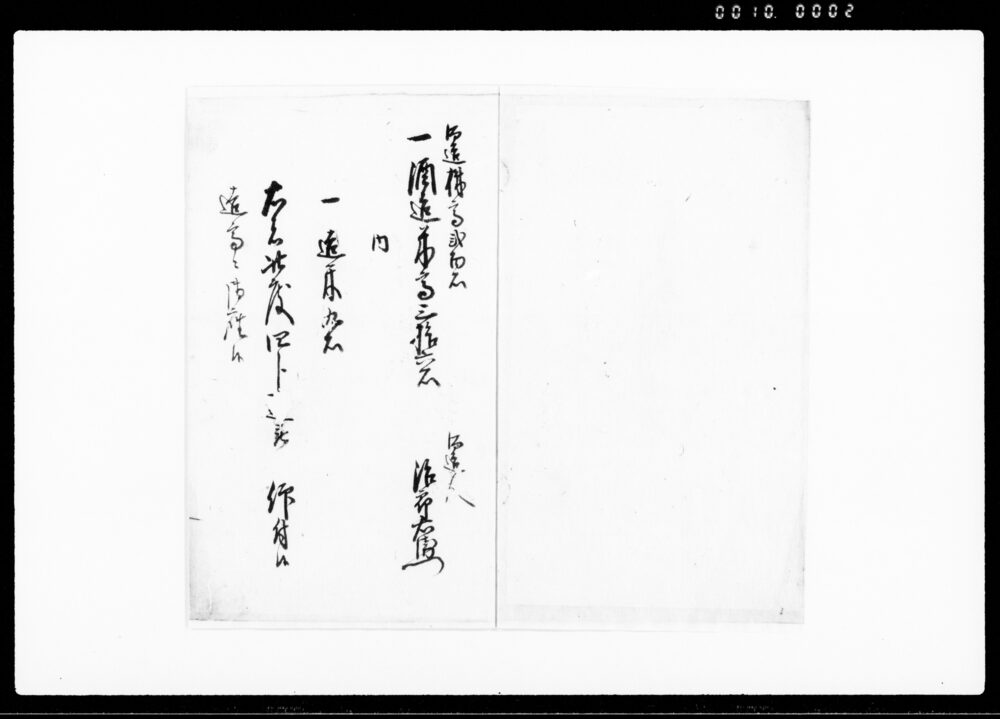 0010. 0002
酒造株高弐百石
一 酒造米高三拾六石
酒造人
治郎右衛門
内
一 造米九石
右者此度四ト一之譲 仰付候
造高ニ御座候